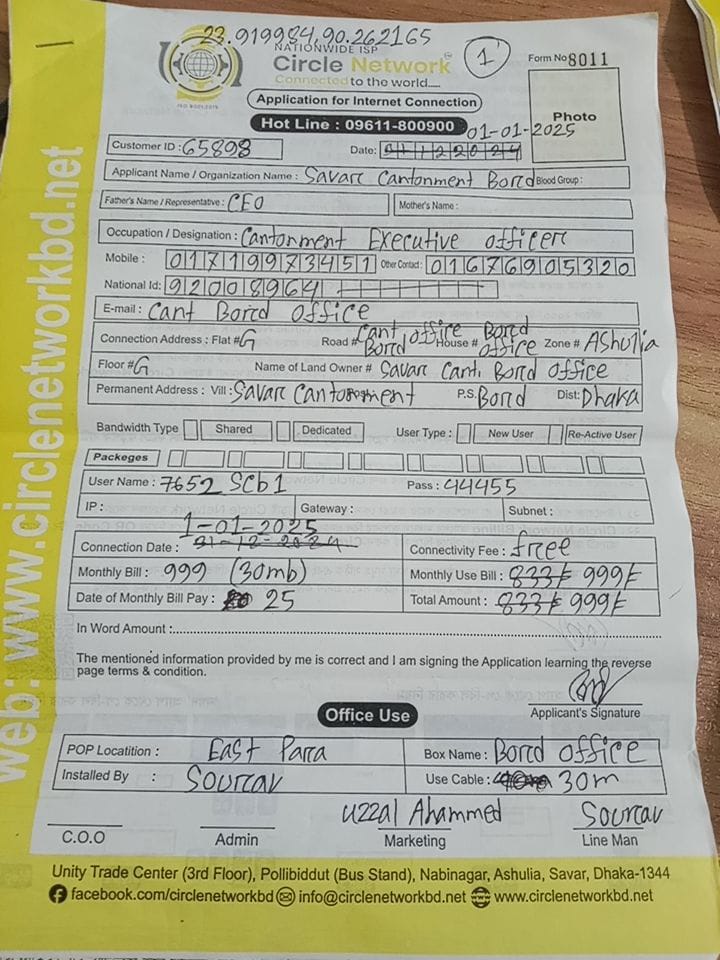 23.919984,90.262165
NATIONWIDE ISP
Circle Network
Connected to the world.....
ISO 9001:2015
1
Form No 8011
Application for Internet Connection
Photo
Hot Line : 09611-800900
01-01-2025
Customer ID : 65898 Date: 31122024
Applicant Name / Organization Name : Savar Cantonment Bord Blood Group :
Father's Name / Representative : CEO Mother's Name :
Occupation / Designation : Cantonment Executive officer
Mobile : 01719973451 Other Contact : 01676905320
National Id: 92008964
E-mail : Cant Bord office
Connection Address : Flat # G Road # Cant office Bord House # Bord office Zone # Ashulia
Floor # G Name of Land Owner # Savar Cant. Bord office
Permanent Address : Vill : Savar Cantonment Post: P.S. Bord Dist: Dhaka
Bandwidth Type Shared Dedicated User Type : New User Re-Active User
Packeges
User Name : 7652 SCb1 Pass : 44455
IP : Gateway : Subnet :
1-01-2025
Connection Date : 31-12-2024 Connectivity Fee : free
Monthly Bill : 999 (30mb) Monthly Use Bill : 833/= 999/=
Date of Monthly Bill Pay : 25 Total Amount : 833/= 999/=
In Word Amount :
The mentioned information provided by me is correct and I am signing the Application learning the reverse
page terms & condition.
Applicant's Signature
Office Use
POP Locatition : East Para Box Name : Bord office
Installed By : Sourav Use Cable : 30m
Uzzal Ahammed Sourav
C.O.O Admin Marketing Line Man
Unity Trade Center (3rd Floor), Pollibiddut (Bus Stand), Nabinagar, Ashulia, Savar, Dhaka-1344
facebook.com/circlenetworkbd info@circlenetworkbd.net www.circlenetworkbd.net
web: www.circlenetworkbd.net